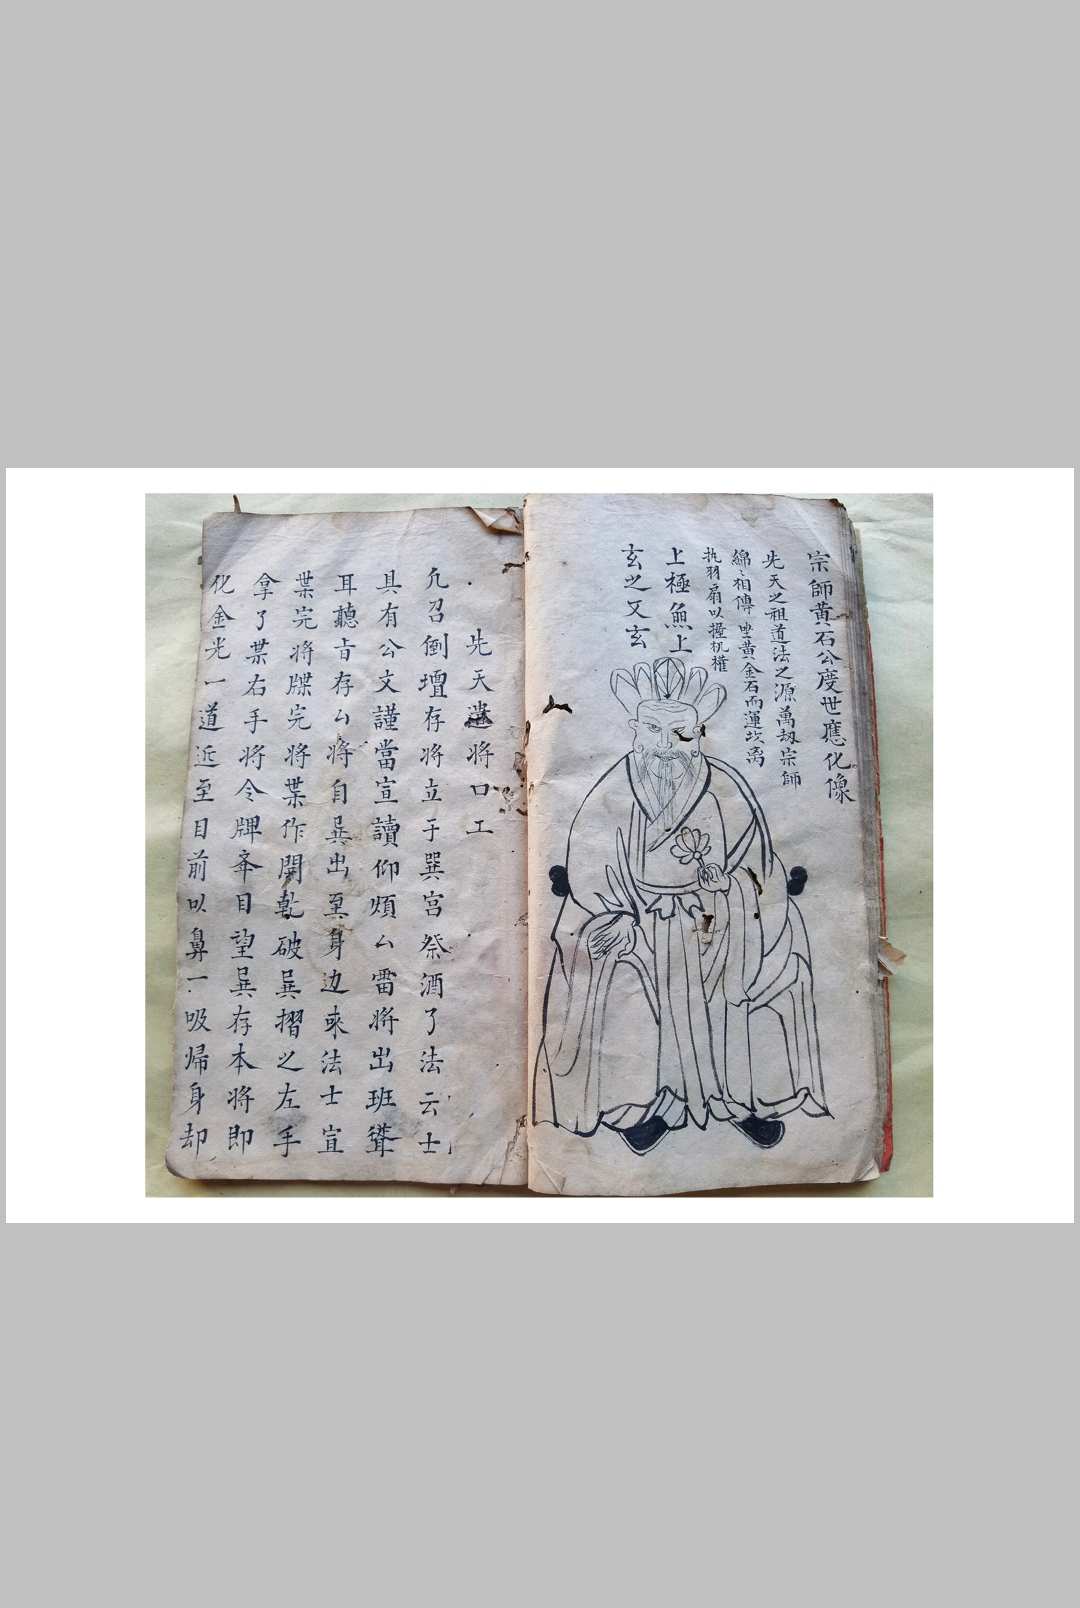 宗師黄石公度世應化像
先天之祖道法之源萬刼宗師
綿〻相傳坐黄金石而運坎离
执羽扇以握机權
上極無上
玄之又玄
先天遣将口工
凢召倒壇存将立于巽宫祭酒了法云士
具有公文謹當宣讀仰煩厶雷将出班聳
耳聽旨存厶将自巽出至身边来法士宣
葉完将牒完将葉作開乾破巽摺之左手
拿了葉右手将令牌齐目望巽存本将即
化金光一道近至目前以鼻一吸帰身却